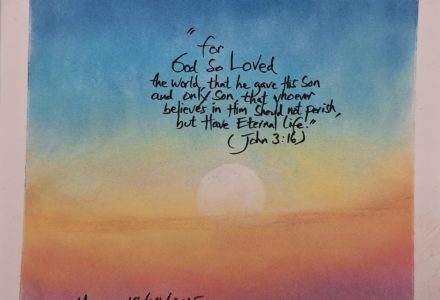 "for
God So Loved
the world, that he gave His Son
and only Son, that whoever
believes in Him should not perish,
but Have Eternal Life."
(John 3:16)